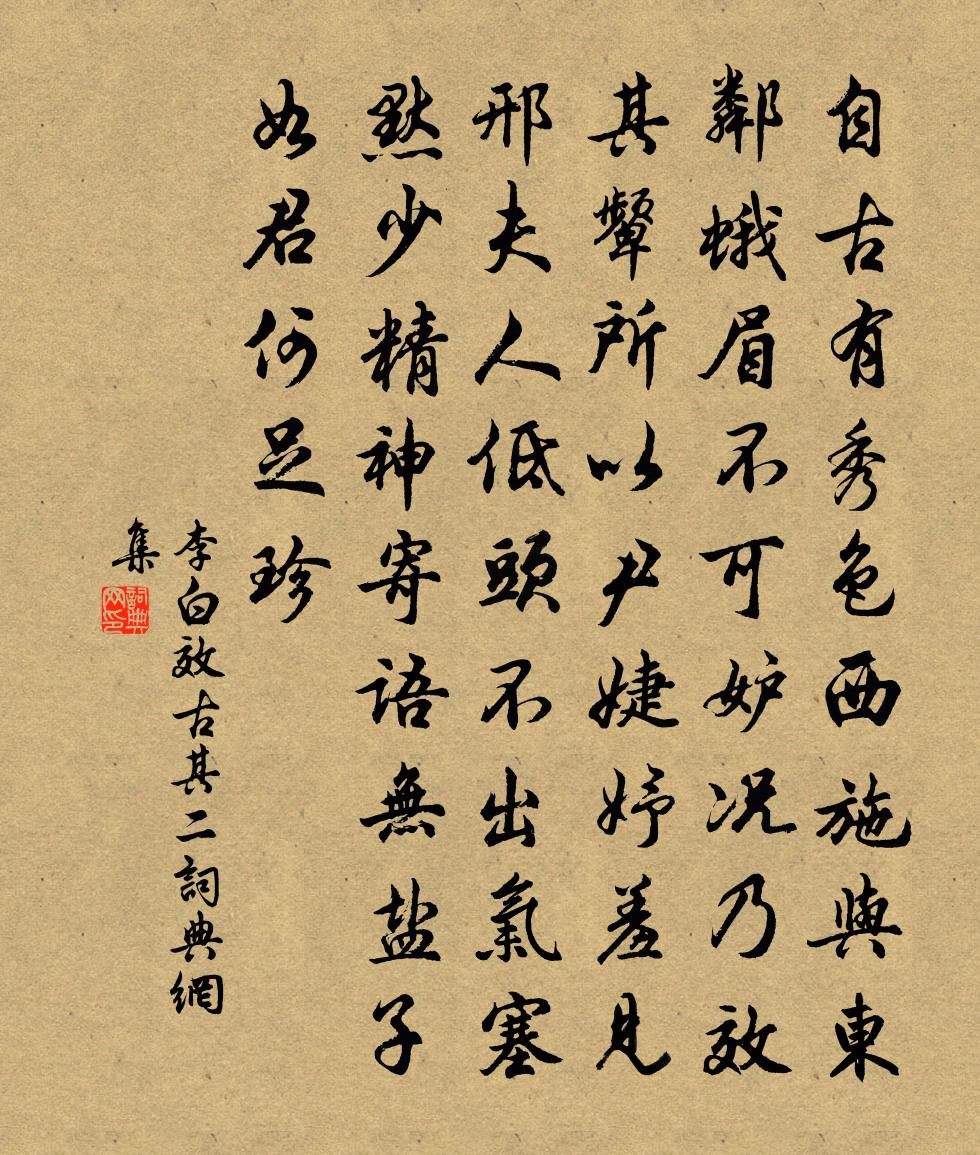 自古有秀色西施與東
鄰蛾眉不可妒况乃效
其顰所以尹婕妤羞見
邢夫人低頭不出氣塞
默少精神寄語無盐子
如君何足珍
李白效古其二詞典網
集
詞典网印